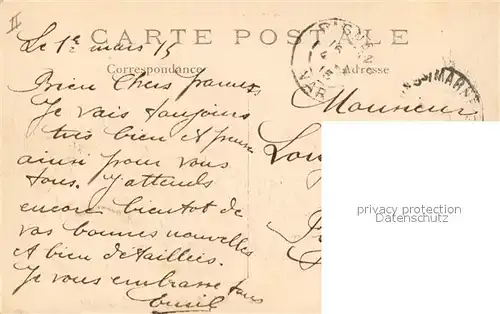 II
CARTE POSTALE
Le 1er mars 15
Correspondance
Adresse
VAR
MARNE
Bien Chers parents,
Je vais toujours
très bien et pense
ainsi pour vous
tous. J'attends
encore bientot de
vos bonnes nouvelles
et bien détaillées.
Je vous embrasse tous
Emile
Monsieur
Lou
privacy protection
Datenschutz